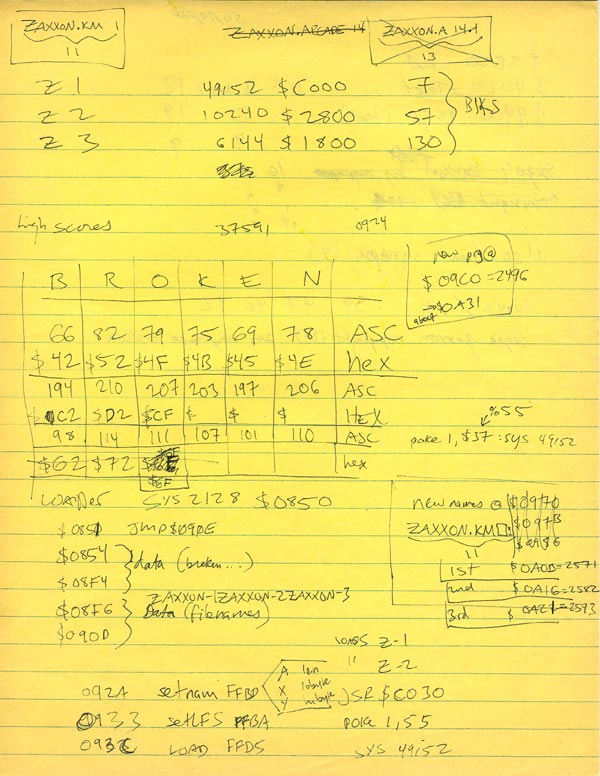 ZAXXON.KM 1 ZAXXON.ARCADE 14 ZAXXON.A 14.1
11 13
Z 1 49152 $C000 7
Z 2 10240 $2800 57 Blks
Z 3 6144 $1800 130
high scores 37591 0924
new prg@
$ 09C0 = 2496
about → $0A31
B R O K E N
66 82 79 75 69 78 ASC
$42 $52 $4F $4B $45 $4E hex
194 210 207 203 197 206 ASC
$C2 $D2 $CF $ $ $ HEX
98 114 111 107 101 110 ASC
$62 $72 $6F hex
%55
poke 1, $37 : sys 49152
LOADER SYS 2128 $0850
$0851 JMP $090E
$0854 data (broken...)
$08F4
ZAXXON-1ZAXXON-2ZAXXON-3
$08F6 Data (filenames)
$090D
new names @ $0970
ZAXXON.KM $097B
11 $0986
1st $0A0B=2571
2nd $0A16=2582
3rd $0A21=2593
LOADS Z-1
" Z-2
A len
X lobyte
Y hibyte
092A setnam FFBD JSR $C030
0933 setLFS FFBA poke 1,55
093C LOAD FFD5 SYS 49152